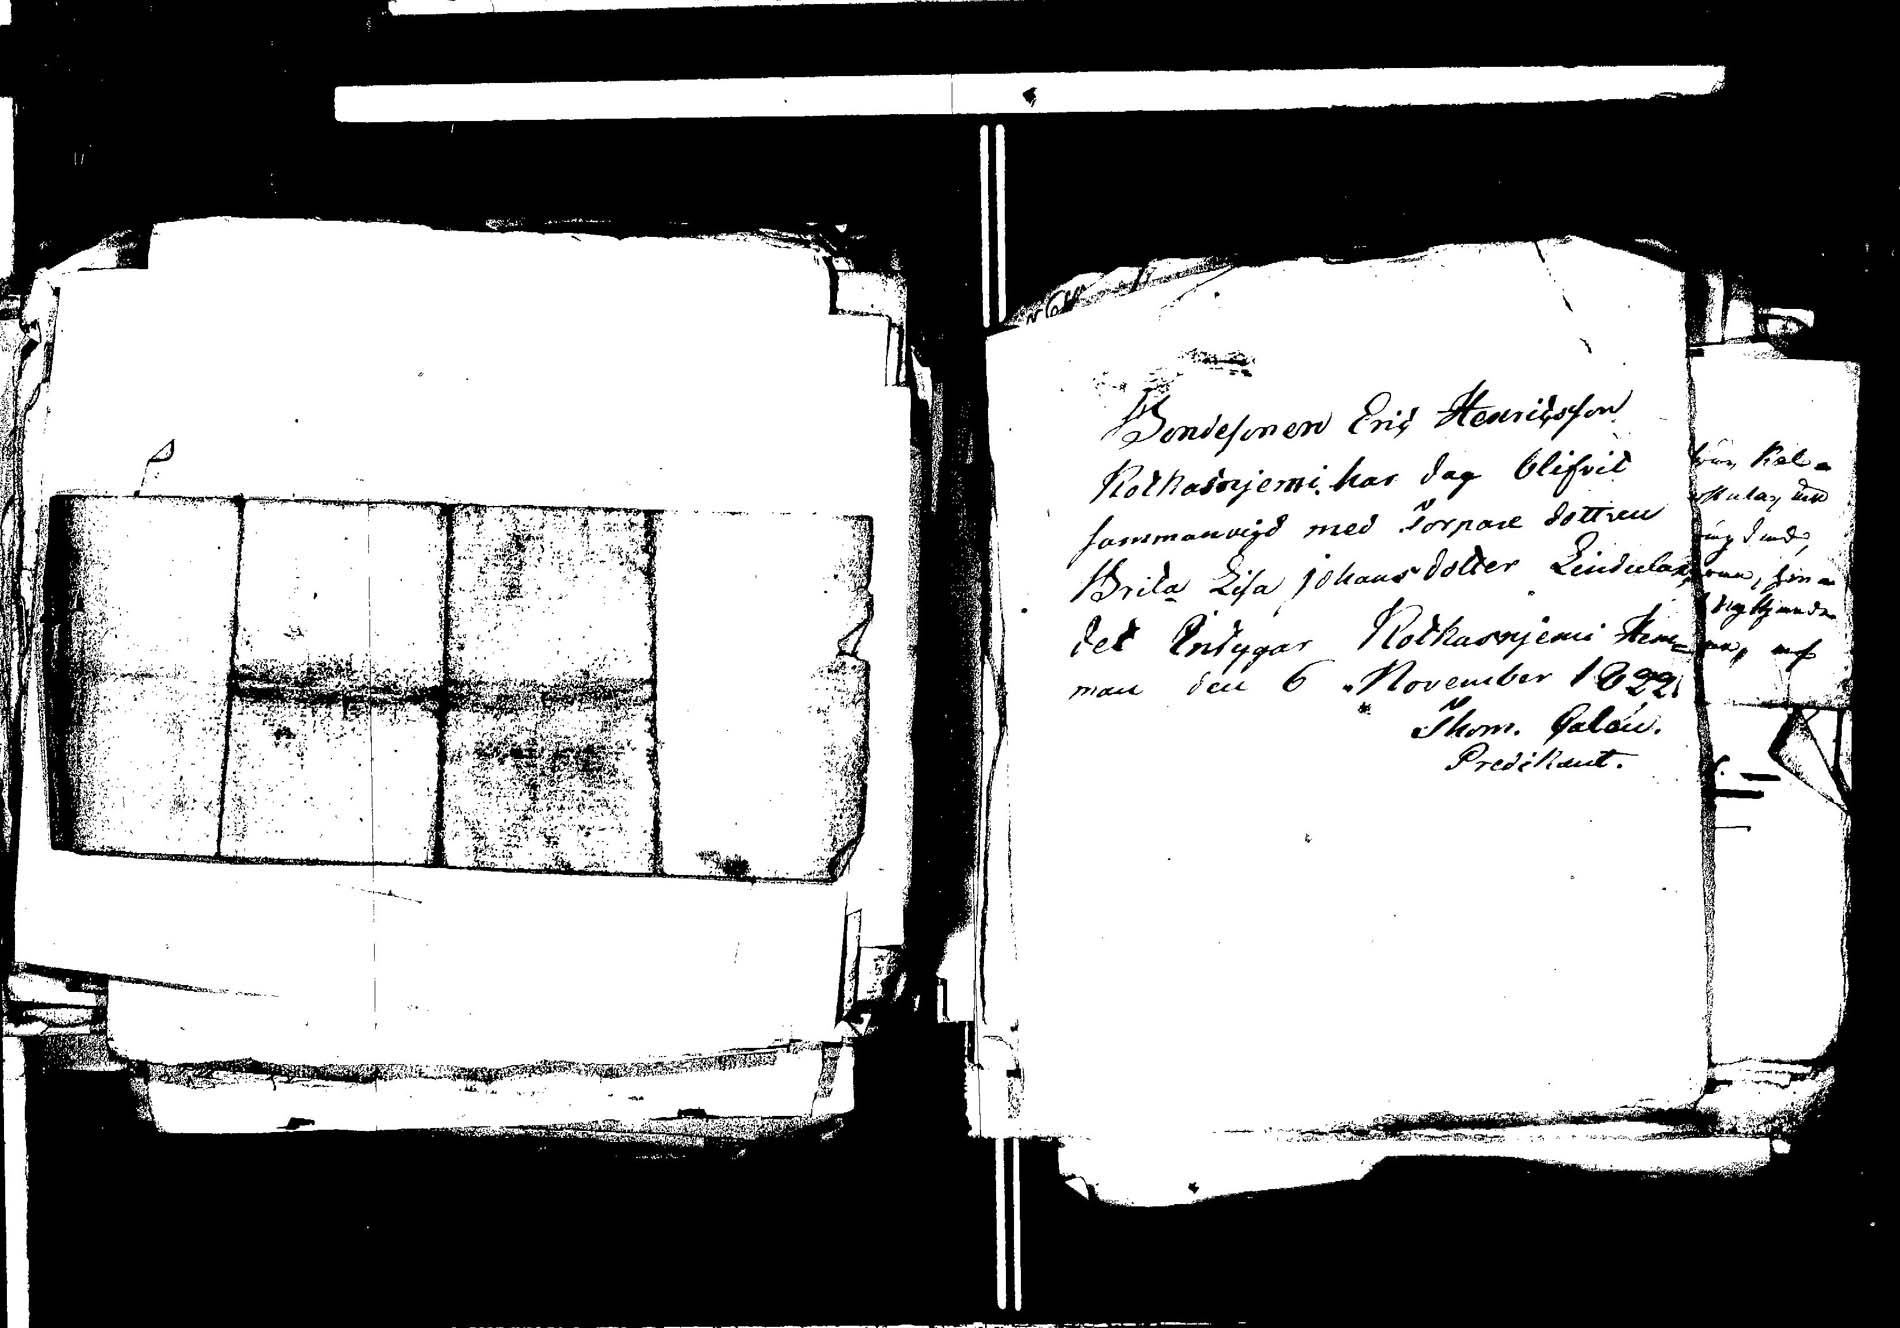 Bondesonen Eric Henricsson
Kotkasnjemi har dag blifvit
sammanvigd med Torpare dottren
Brita Lisa Johansdotter Lindula
det Intygar Kotkasnjemi Hem=
man den 6 November 1822.
Thom. Galén.
Predikant.